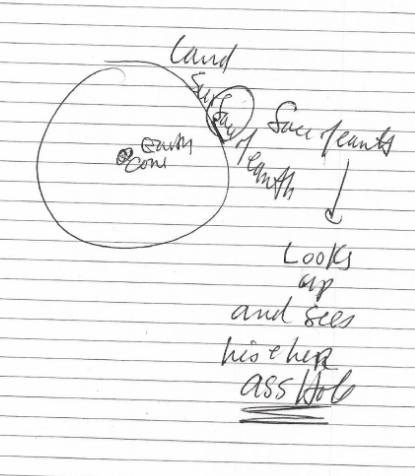 Land
Surface of earth
Earth
Core
Face of earth
Looks
up
and sees
his & her
ass Hole